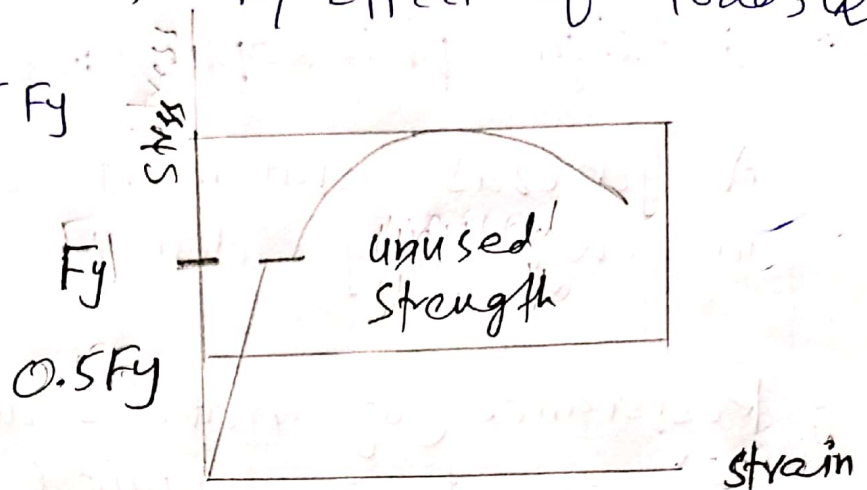 effect of
Fy
stress
Fy
unused
strength
0.5Fy
strain